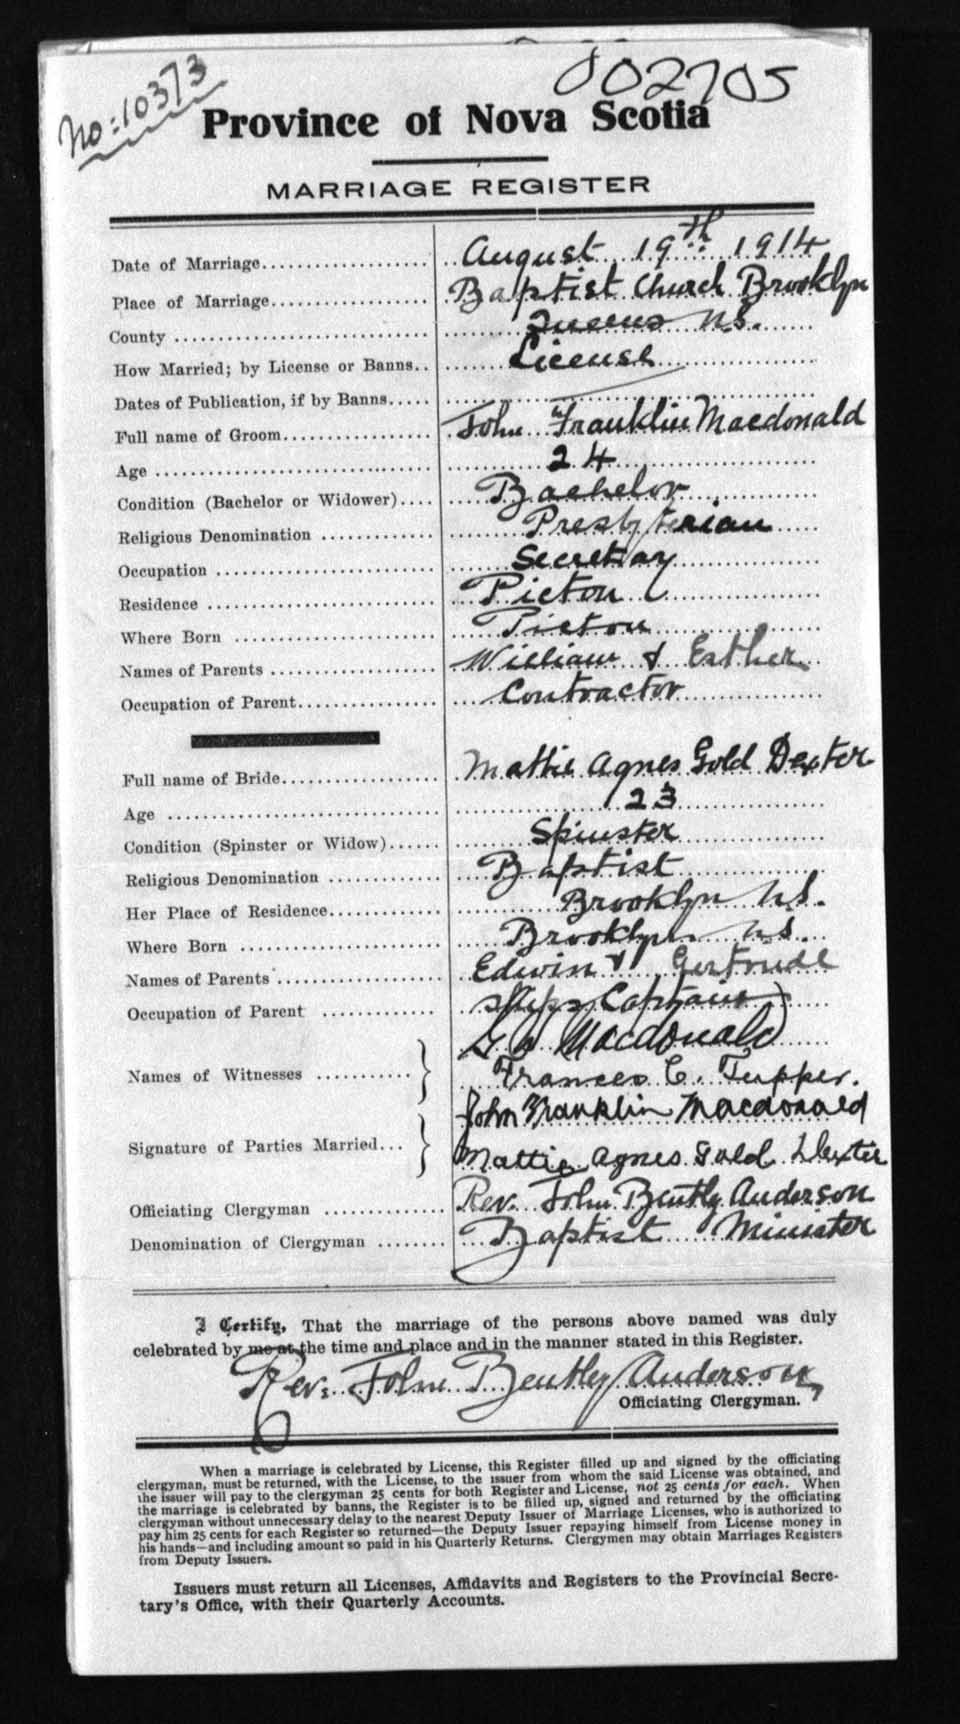 No: 10373
002705
Province of Nova Scotia
MARRIAGE REGISTER
Date of Marriage.................... August 19th 1914
Place of Marriage................... Baptist Church Brooklyn
County .............................. Queens N.S.
How Married; by License or Banns.. License
Dates of Publication, if by Banns.....
Full name of Groom.................. John Franklin Macdonald
Age ................................. 24
Condition (Bachelor or Widower).... Bachelor
Religious Denomination ............. Presbyterian
Occupation .......................... Secretary
Residence ........................... Pictou
Where Born ......................... Pictou
Names of Parents ................... William & Esther
Occupation of Parent................. Contractor
Full name of Bride................... Mattie Agnes Gold Dexter
Age ................................. 23
Condition (Spinster or Widow)...... Spinster
Religious Denomination ............. Baptist
Her Place of Residence.............. Brooklyn N.S.
Where Born ........................ Brooklyn N.S.
Names of Parents .................... Edwin & Gertrude
Occupation of Parent .............. Ships Captain
Macdonald
Names of Witnesses ........... } Frances E. Tupper.
John Franklin Macdonald
Signature of Parties Married... }
Mattie Agnes Gold Dexter
Officiating Clergyman .............. Rev. John Bently Anderson
Denomination of Clergyman ........ Baptist Minister
I Certify, That the marriage of the persons above named was duly
celebrated by me at the time and place and in the manner stated in this Register.
Rev. John Bently Anderson
Officiating Clergyman.
When a marriage is celebrated by License, this Register filled up and signed by the officiating
clergyman, must be returned, with the License, to the issuer from whom the said License was obtained, and
the issuer will pay to the clergyman 25 cents for both Register and License, not 25 cents for each. When
the marriage is celebrated by banns, the Register is to be filled up, signed and returned by the officiating
clergyman without unnecessary delay to the nearest Deputy Issuer of Marriage Licenses, who is authorized to
pay him 25 cents for each Register so returned—the Deputy Issuer repaying himself from License money in
his hands—and including amount so paid in his Quarterly Returns. Clergymen may obtain Marriages Registers
from Deputy Issuers.
Issuers must return all Licenses, Affidavits and Registers to the Provincial Secre-
tary's Office, with their Quarterly Accounts.